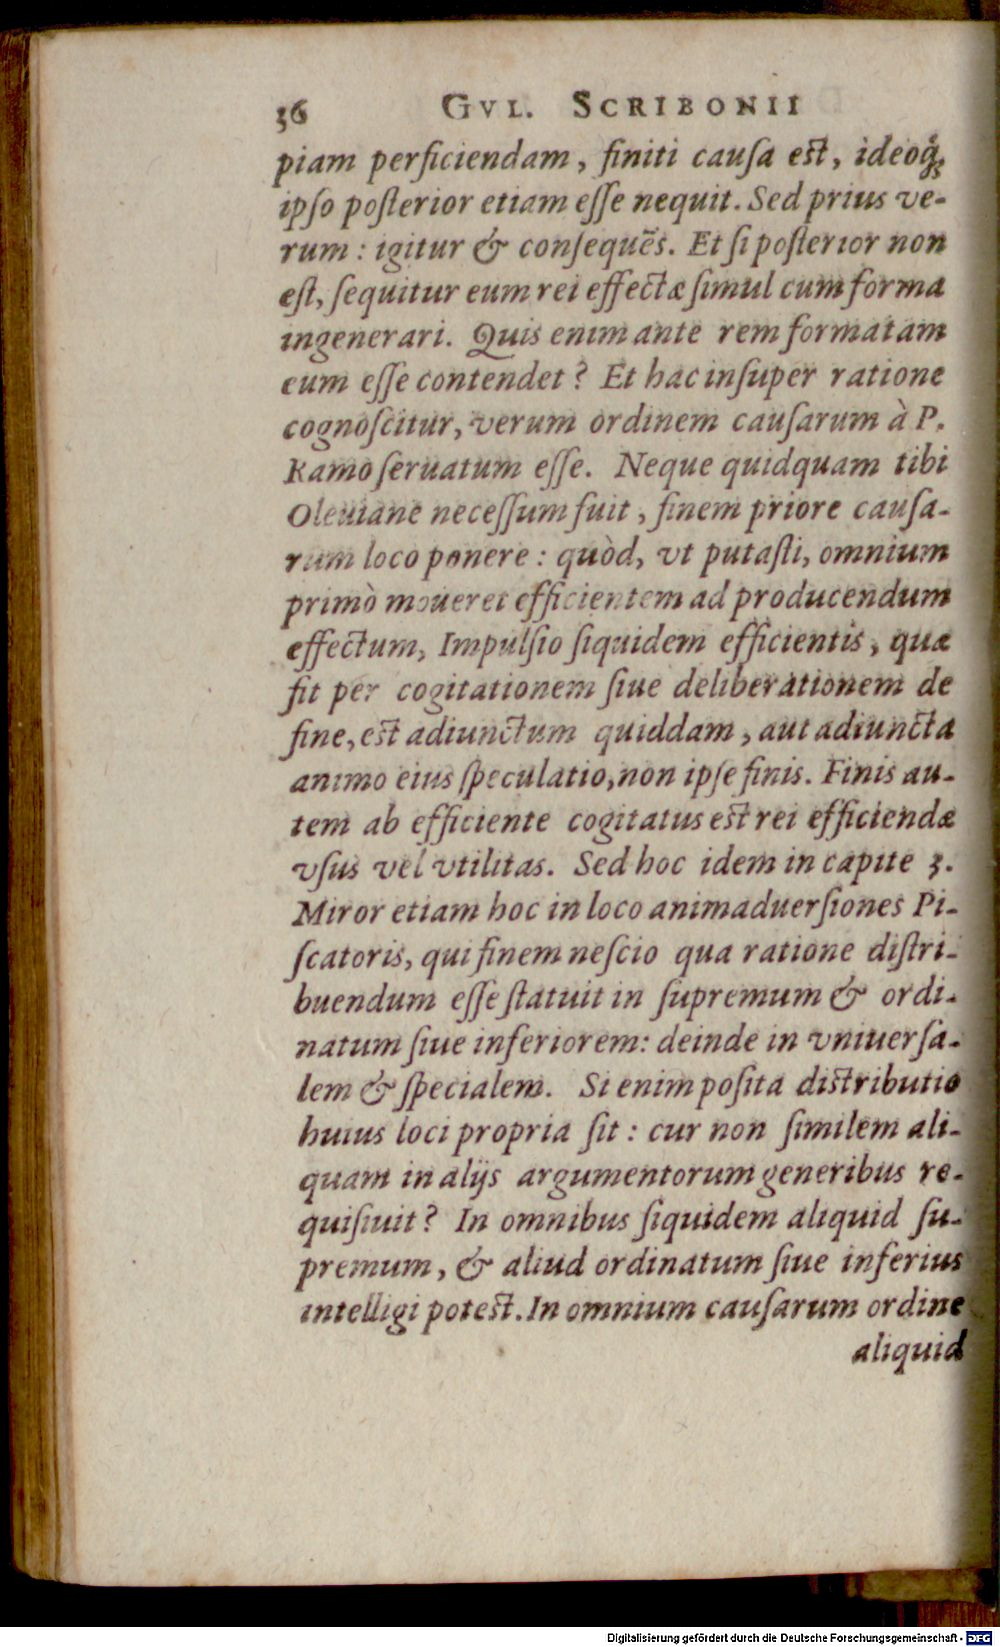 36 GVL. SCRIBONII
piam perficiendam, finiti cauſa eſt, ideoq́;
ipſo poſterior etiam eſſe nequit. Sed prius ve-
rum: igitur & conſequēs. Et ſi poſterior non
eſt, ſequitur eum rei effectæ ſimul cum forma
ingenerari. Quis enim ante rem formatam
eum eſſe contendet? Et hac inſuper ratione
cognoſcitur, verum ordinem cauſarum à P.
Ramo ſeruatum eſſe. Neque quidquam tibi
Oleuiane neceſſum fuit, finem priore cauſa-
rum loco ponere: quòd, vt putaſti, omnium
primò moueret efficientem ad producendum
effectum, Impulſio ſiquidem efficientis, quæ
fit per cogitationem ſiue deliberationem de
fine, eſt adiunctum quiddam, aut adiuncta
animo eius ſpeculatio, non ipſe finis. Finis au-
tem ab efficiente cogitatus eſt rei efficiendæ
vſus vel vtilitas. Sed hoc idem in capite 3.
Miror etiam hoc in loco animaduerſiones Pi-
ſcatoris, qui finem neſcio qua ratione diſtri-
buendum eſſe ſtatuit in ſupremum & ordi-
natum ſiue inferiorem: deinde in vniuerſa-
lem & ſpecialem. Si enim poſita diſtributio
huius loci propria ſit: cur non ſimilem ali-
quam in alijs argumentorum generibus re-
quiſiuit? In omnibus ſiquidem aliquid ſu-
premum, & aliud ordinatum ſiue inferius
intelligi poteſt. In omnium cauſarum ordine
aliquid
Digitalisierung gefördert durch die Deutsche Forschungsgemeinschaft - DFG